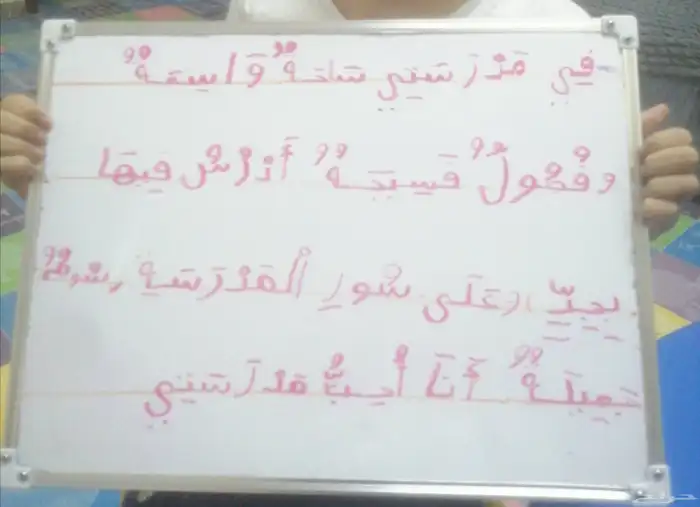 فِي مَدْرَسَتِي سَاحَةٌ وَاسِعَةٌ
وَفُصُولٌ فَسِيحَةٌ أَدْرُسُ فِيهَا
بِجِدٍّ وَعَلَى سُورِ الْمَدْرَسَةِ رُسُومٌ
جَمِيلَةٌ أَنَا أُحِبُّ مَدْرَسَتِي